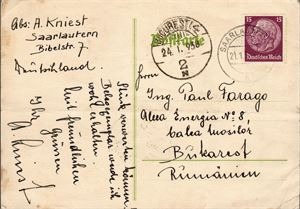 Abs: A. Kniest
Saarlautern
Bibelstr. 7
Deutschland.
wohl erhalten.
Mit freundlichen
Grüssen
Ihr
A. Kniest
BUCUREȘTI
24.1.1938
2
SAARLAUTERN
21.1.
15
Deutsches Reich
Herrn
Ing. Paul Farago
Aleea Energia Nº 8,
Calea Mosilor
Bukarest
Rumänien